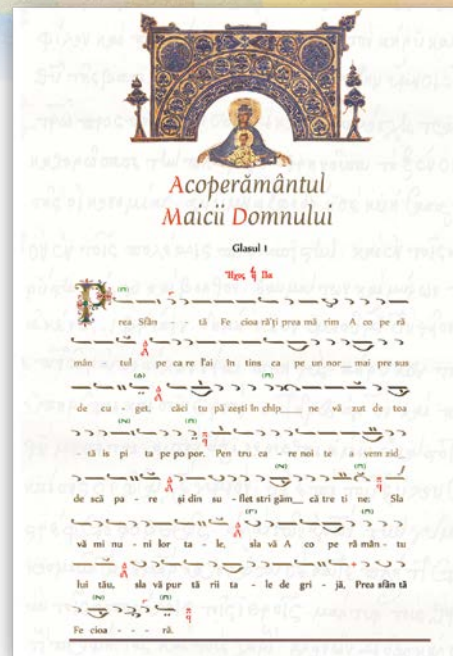 Acoperământul
Maicii Domnului
Glasul 1
Ἦχος Πα
Prea Sfân - - - tă Fe - cioa ră'ţi prea mă - rim A co pe ră
mân - - tul pe ca re l'ai în tins ca pe un nor__ mai pre sus
de cu - get, căci tu pă zeşti în chip__ ne - vă - zut de toa
tă is - pi - ta pe po por. Pen tru ca - re noi te - a - vem zid__
de scă - pa - re şi din su - flet stri găm__ că tre ti - ne: Sla
vă mi nu - ni lor ta - le, sla vă A - co - pe - ră mân - tu
lui tău, sla vă pur - tă rii ta - le de gri - jă, Prea sfân tă
Fe cioa - - - ră.